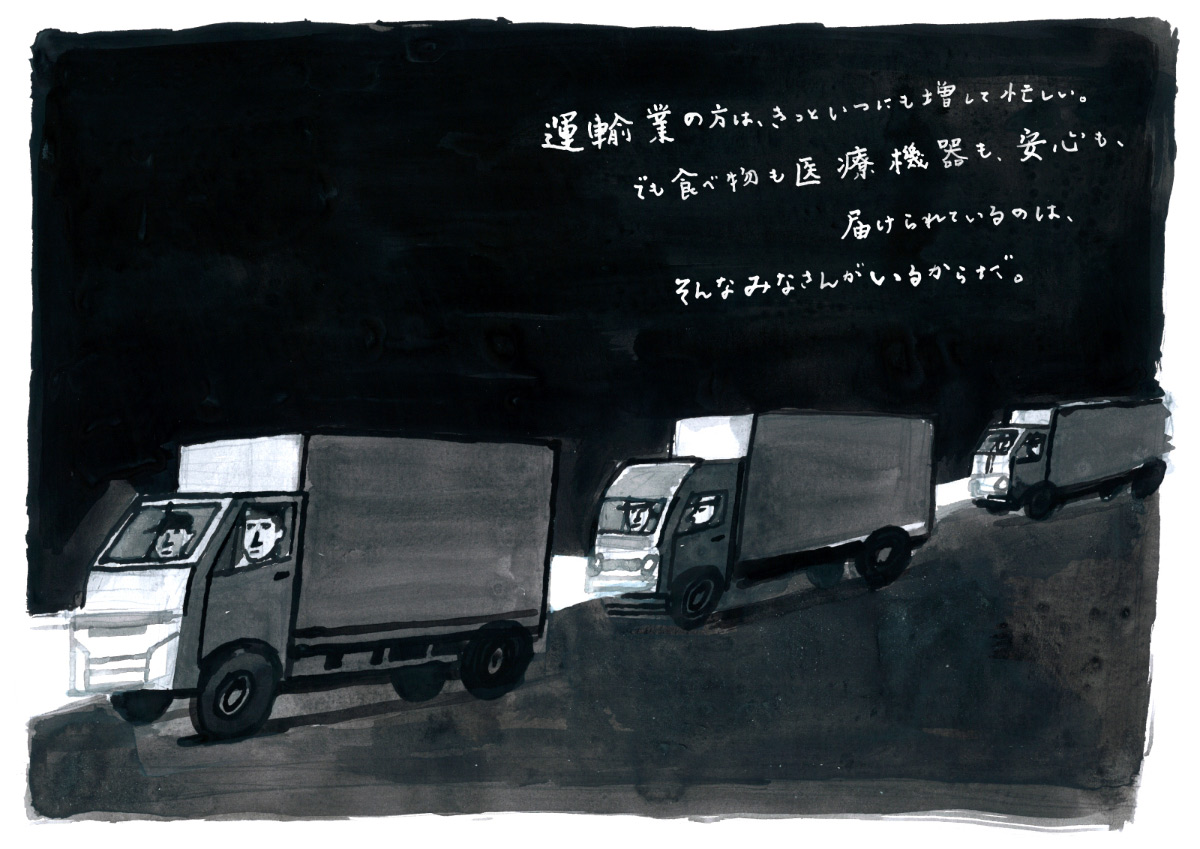 運輸業の方は、きっといつにも増して忙しい。
でも食べ物も医療機器も、安心も、
届けられているのは、
そんなみなさんがいるからだ。